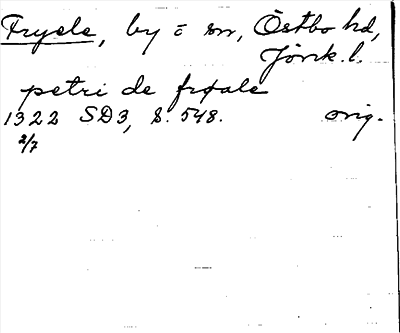 Fryele, by o sn, Östbo hd,
Jönk. l.
petri de frøale
1322 SD3, s. 548. orig.
2/7